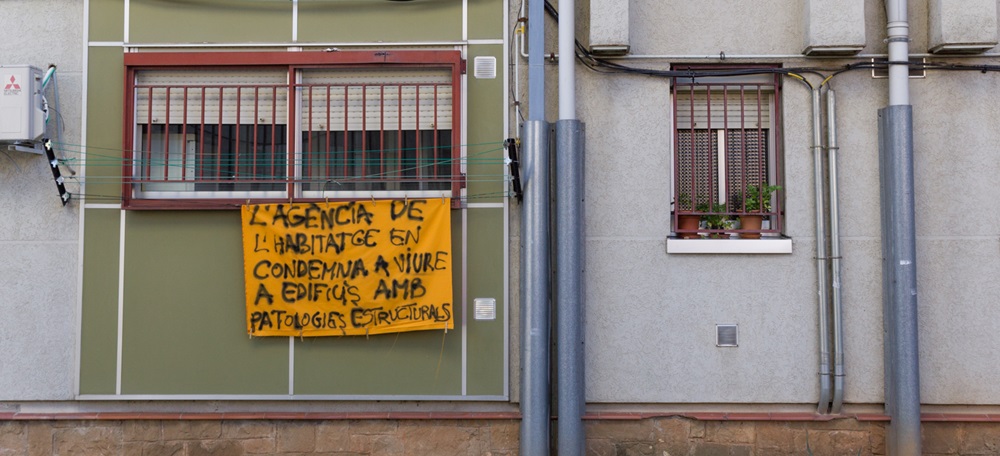 L'AGÈNCIA DE
L'HABITATGE EN
CONDEMNA A VIURE
A EDIFICIS AMB
PATOLOGIES ESTRUCTURALS
MITSUBISHI
ELECTRIC